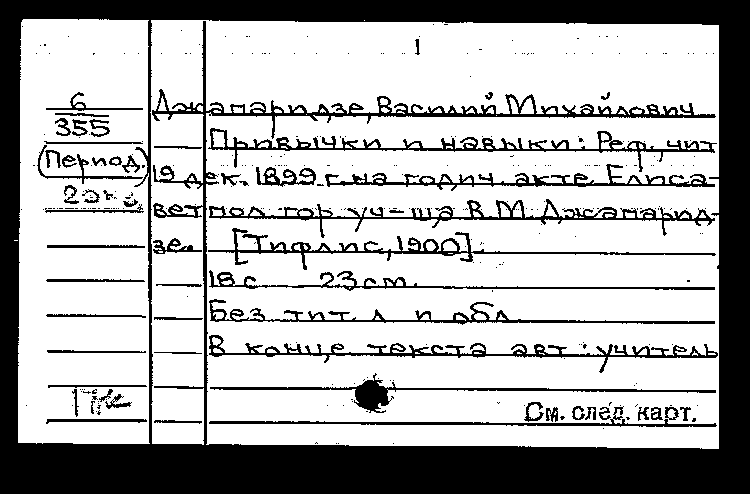 1
6
355
(Период.)
2 экз.
Джапаридзе, Василий Михайлович
Привычки и навыки: Реф., чит
19 дек. 1899 г. на годич. акте Елиса-
ветпол. гор. уч-ща В. М. Джапарид-
зе. [Тифлис, 1900].
18 с. 23 см.
Без тит. л. и обл.
В конце текста авт.: учитель
См. след. карт.